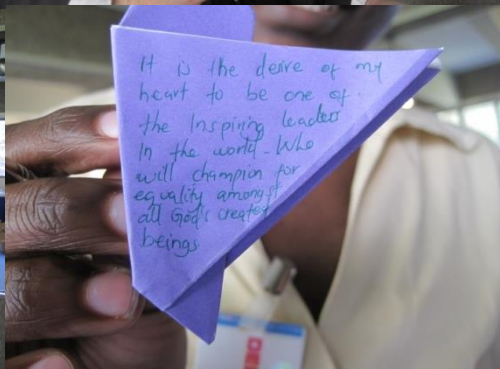 It is the desire of my
heart to be one of
the Inspiring leaders
In the world - Who
will champion for
equality amongst
all God's created
beings